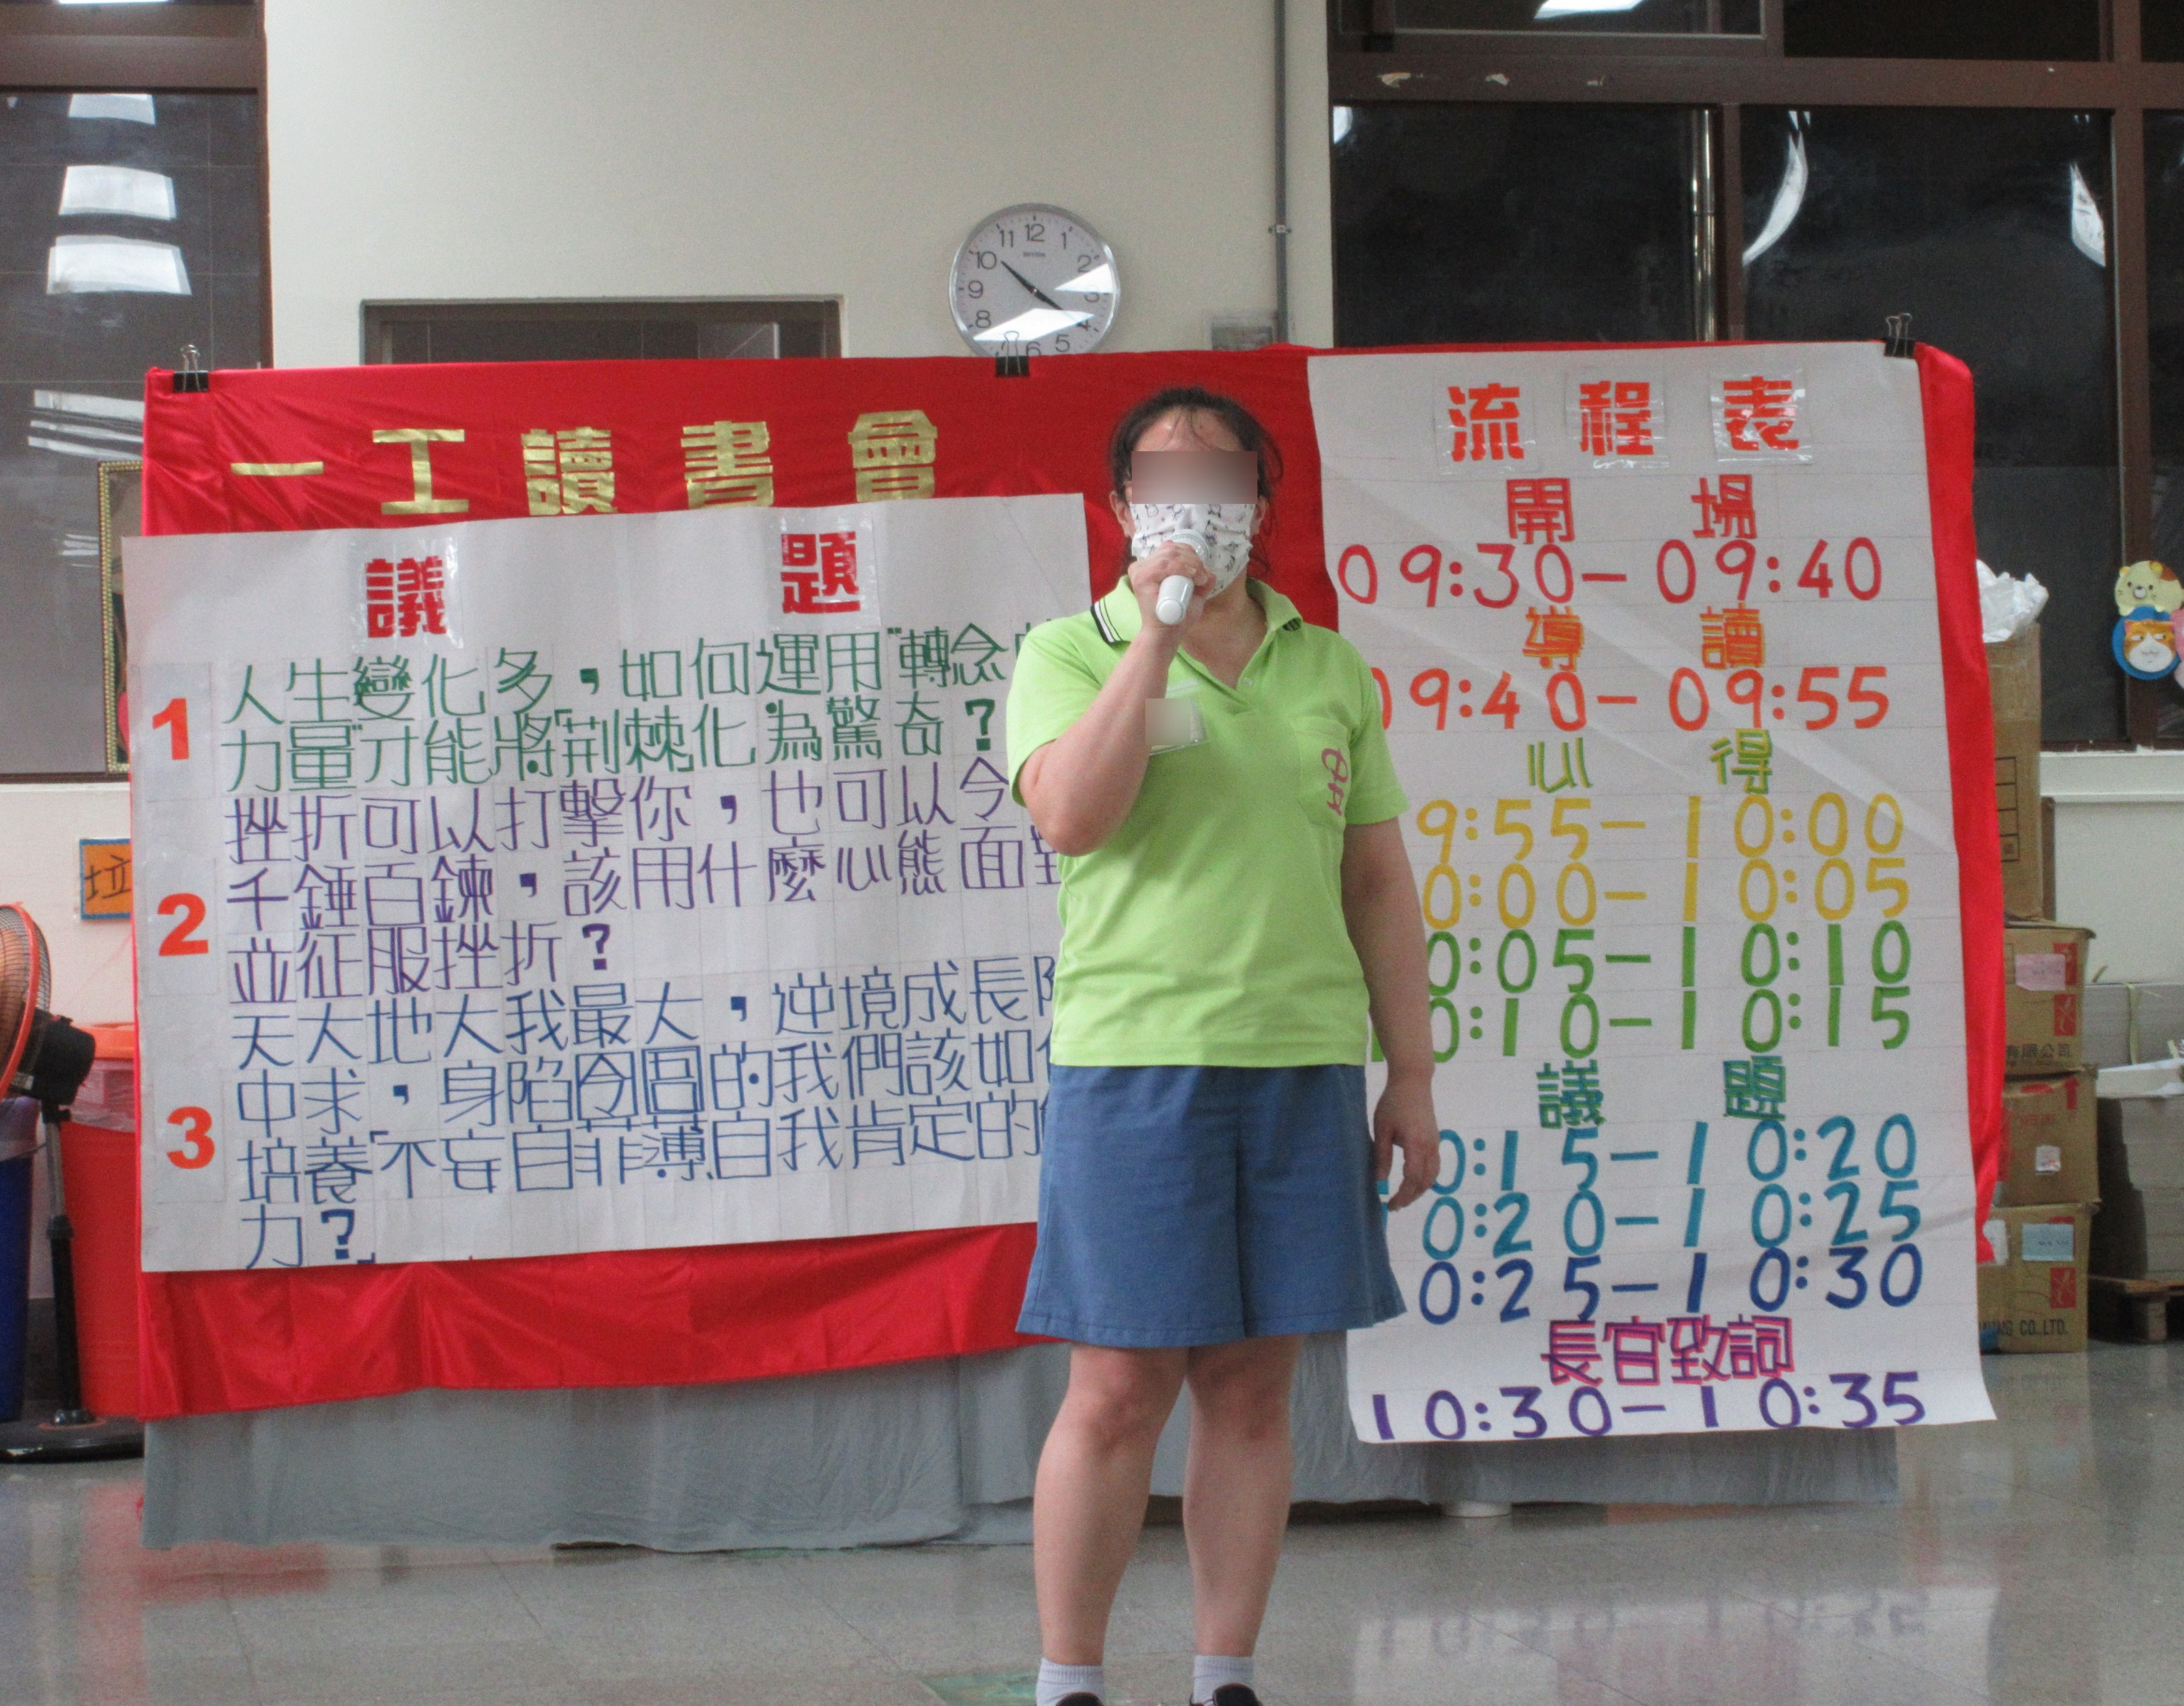 一工讀書會
議題
1
人生變化多，如何運用"轉念
力量"才能將「荊棘」化為驚奇？
2
挫折可以打擊你，也可以令
千錘百鍊，該用什麼心態面
並征服挫折？
3
天大地大我最大，逆境成長
中求，身陷囹圄的我們該如
培養「不妄自菲薄，自我肯定的
力？」
流程表
開場
09:30-09:40
導讀
09:40-09:55
心得
9:55-10:00
0:00-10:05
0:05-10:10
10:10-10:15
議題
0:15-10:20
0:20-10:25
0:25-10:30
長官致詞
10:30-10:35
11 12 1
10 2
9 3
8 4
6 5
垃
有限公司
CO.,LTD.